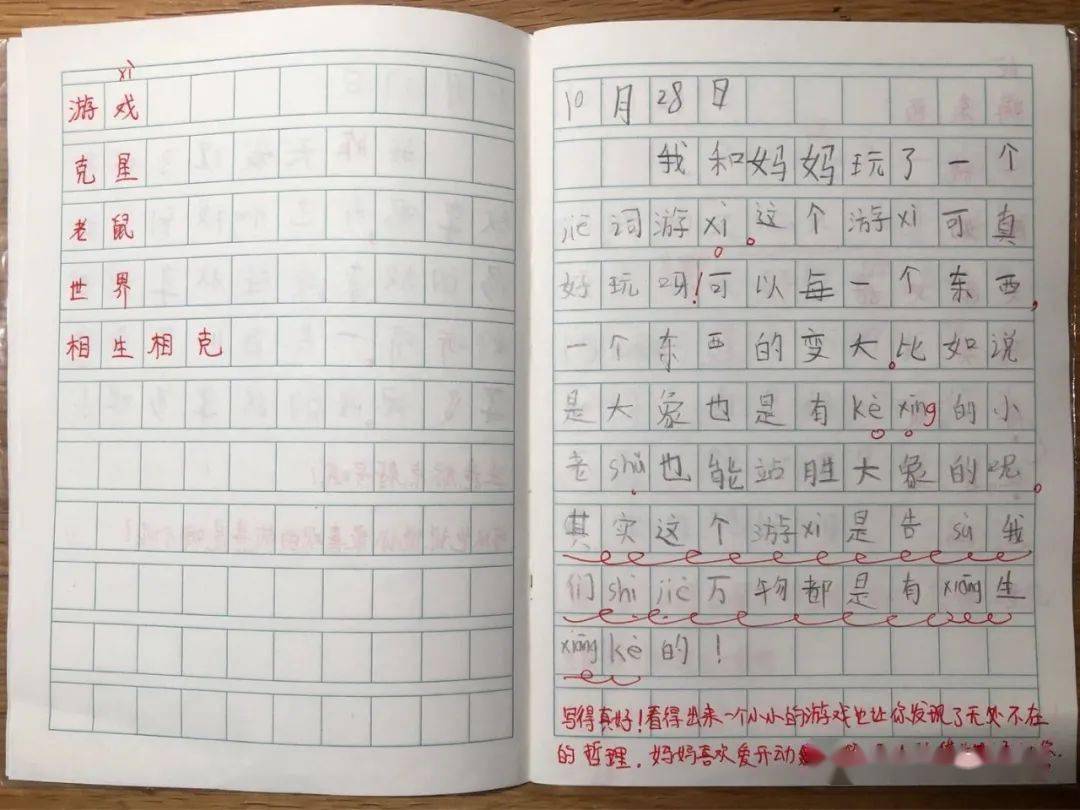 xì
游戏
克星
老鼠
世界
相生相克
10月28日
我和妈妈玩了一个
jiē词游xì。这个游xì可真
好玩呀!可以每一个东西,
一个东西的变大。比如说
是大象也是有kè xīng的小
老shǔ也能站胜大象的呢。
其实这个游xì是告sù我
们shì jiè万物都是有xiāng生
xiāng kè的!
写得真好!看得出来一个小小的游戏也让你发现了无处不在
的哲理,妈妈喜欢爱开动